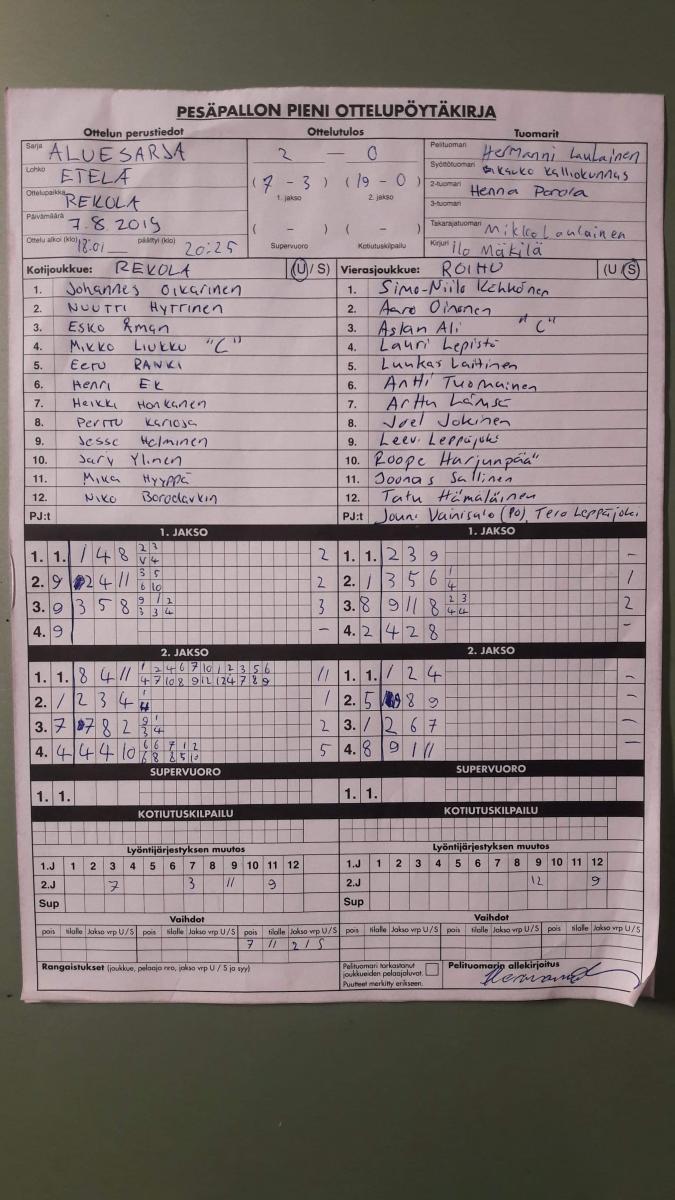 PESÄPALLON PIENI OTTELUPÖYTÄKIRJA
Ottelun perustiedot Ottelutulos Tuomarit
Sarja ALUESARJA 2 — 0 Pelituomari Hermanni Laulainen
Lohko ETELÄ Syöttötuomari Kauko Kalliokunnas
Ottelupaikka REKOLA (7 - 3) (19 - 0) 2-tuomari Henna Porola
1. jakso 2. jakso 3-tuomari
Päivämäärä 7.8.2019 ( - ) ( - ) Takarajatuomari Mikko Laulainen
Ottelu alkoi (klo) 18:01 päättyi (klo) 20:25 Supervuoro Kotiutuskilpailu Kirjuri Ilo Mäkilä
Kotijoukkue: REKOLA (U / S) Vierasjoukkue: ROIHU (U / S)
1. Johannes Oikarinen 1. Simo-Niilo Kehkönen
2. Nuutti Hyttinen 2. Aaro Oinonen
3. Esko Åman 3. Aslan Ali "C"
4. Mikko Liukku "C" 4. Lauri Lepistö
5. Eetu Ranki 5. Luukas Laitinen
6. Henri Ek 6. Antti Tuomainen
7. Heikki Honkanen 7. Arttu Lämsä
8. Perttu Karjosa 8. Joel Jokinen
9. Jesse Helminen 9. Leevi Leppäjoki
10. Jary Ylinen 10. Roope Harjunpää
11. Mika Hyyppä 11. Joonas Sallinen
12. Niko Borodavkin 12. Tatu Hämäläinen
PJ:t PJ:t Jouni Vainisalo (PO), Tero Leppäjoki
1. JAKSO 1. JAKSO
1. 1. 1 4 8 2 3 2 1. 1. 2 3 9 –
V 4
2. 9 2 4 11 3 5 2 2. 1 3 5 6 1 1
6 10 4
3. 9 3 5 8 9 1 2 3 3. 8 9 11 8 2 3 2
3 3 4 4 4
4. 9 – 4. 2 4 2 8 –
2. JAKSO 2. JAKSO
1. 1. 8 4 11 1 2 4 6 7 10 1 2 3 5 6 11 1. 1. 1 2 4 –
4 7 10 8 9 12 12 4 7 8 9
2. 1 2 3 4 1 1 2. 5 8 9 –
4
3. 7 7 8 2 9 1 2 3. 1 2 6 7 –
3 4
4. 4 4 4 10 6 6 7 1 2 5 4. 8 9 1 11 –
6 8 8 5 10
SUPERVUORO SUPERVUORO
1. 1. 1. 1.
KOTIUTUSKILPAILU KOTIUTUSKILPAILU
Lyöntijärjestyksen muutos Lyöntijärjestyksen muutos
1.J 1 2 3 4 5 6 7 8 9 10 11 12 1.J 1 2 3 4 5 6 7 8 9 10 11 12
2.J 7 3 11 9 2.J 12 9
Sup Sup
Vaihdot Vaihdot
pois tilalle Jakso vrp U/S pois tilalle Jakso vrp U/S pois tilalle Jakso vrp U/S pois tilalle Jakso vrp U/S pois tilalle Jakso vrp U/S pois tilalle Jakso vrp U/S
7 11 2 1 S
Rangaistukset (joukkue, pelaaja nro, jakso vrp U / S ja syy) Pelituomari tarkastanut Pelituomarin allekirjoitus
joukkueiden pelaajaluvat.
Puutteet merkitty erikseen.